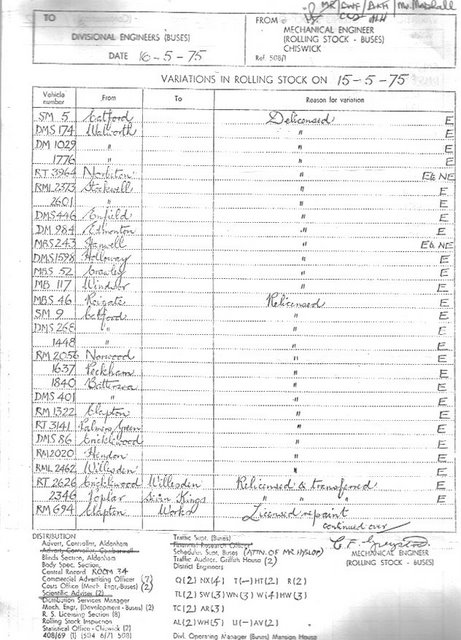 MR/GWF/BKH/Mr. Marshall
TO
DIVISIONAL ENGINEERS (BUSES)
DATE 16-5-75
FROM
MECHANICAL ENGINEER
(ROLLING STOCK - BUSES)
CHISWICK
Ref. 508/1
VARIATIONS IN ROLLING STOCK ON 15-5-75
Vehicle number From To Reason for variation
SM 5 Catford Delicensed E
DMS 174 Walworth " E
DM 1029 " " E
1776 " " E
RT 3964 Norbiton " E& NE
RML 2373 Stockwell " E
2601 " " E
DMS 446 Enfield " E
DM 984 Edmonton " E
MBS 243 Hanwell " E& NE
DMS 1598 Holloway " E
MBS 52 Crawley " E
MB 117 Windsor " E
MBS 46 Reigate Relicensed E
SM 9 Catford " E
DMS 268 " " E
1448 " " E
RM 2056 Norwood " E
1637 Peckham " E
1840 Battersea " E
DMS 401 " " E
RM 1322 Clapton " E
RT 3141 Palmers Green " E
DMS 86 Cricklewood " E
RM 2020 Hendon " E
RML 2462 Willesden " E
RT 2626 Cricklewood Willesden Relicensed & transferred E
2346 Poplar Seven Kings " " " E
RM 694 Clapton Works Licensed repaint E
continued over
DISTRIBUTION
Advert. Controller, Aldenham
Blinds Section, Aldenham
Body Spec. Section
Central Record ROOM 34
Commercial Advertising Officer (7)
Costs Office (Mech. Engr.-Buses) (2)
Scientific Adviser (2)
Distribution Services Manager
Mech. Engr. (Development - Buses) (2)
R. S. Licensing Section (8)
Rolling Stock Inspection
Statistical Office - Chiswick (7)
408/69 (1) 504 6/71 508/
Traffic Supt. (Buses)
Schedules Supt. Buses (ATTN. OF MR HYSLOP)
Traffic Auditor, Griffith House (2)
District Engineers
Q(2) NX(4) T(-) HT(2) R(2)
TL(2) SW(3) WN(3) W(4) HW(3)
TC(2) AR(3)
AL(2) WH(5) U(-) AV(2)
Divl. Operating Manager (Buses) Mansion House
MECHANICAL ENGINEER
(ROLLING STOCK - BUSES)